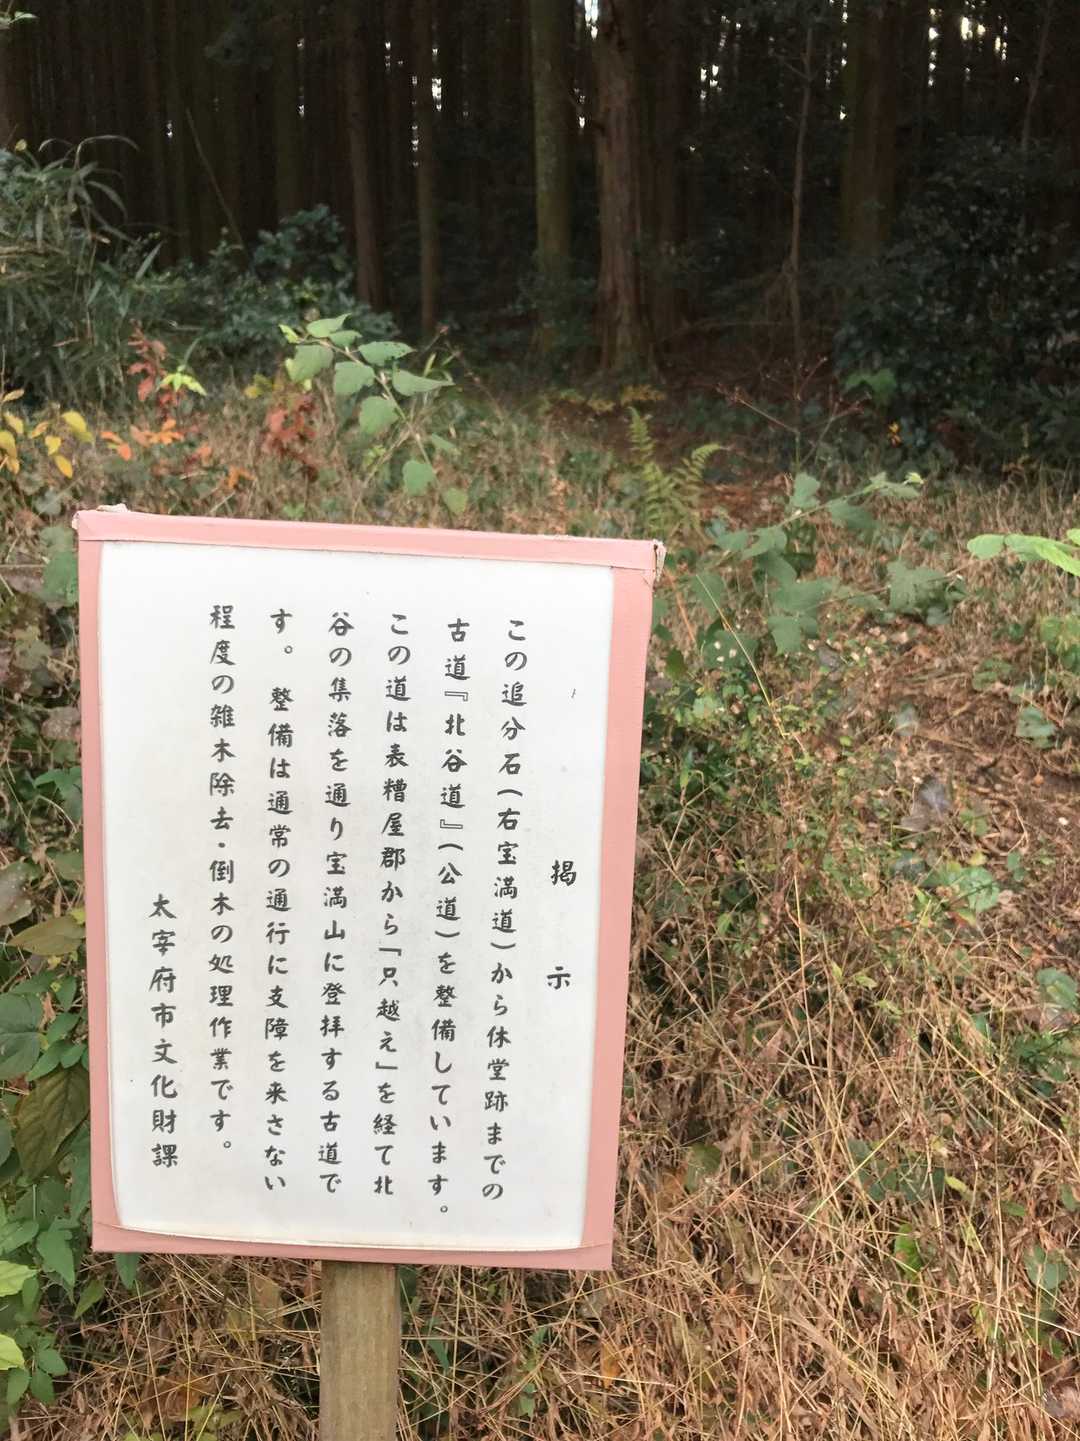 掲示
この追分石(右宝満道)から休堂跡までの
古道『北谷道』(公道)を整備しています。
この道は表糟屋郡から「只越え」を経て北
谷の集落を通り宝満山に登拝する古道で
す。整備は通常の通行に支障を来さない
程度の雑木除去・倒木の処理作業です。
太宰府市文化財課